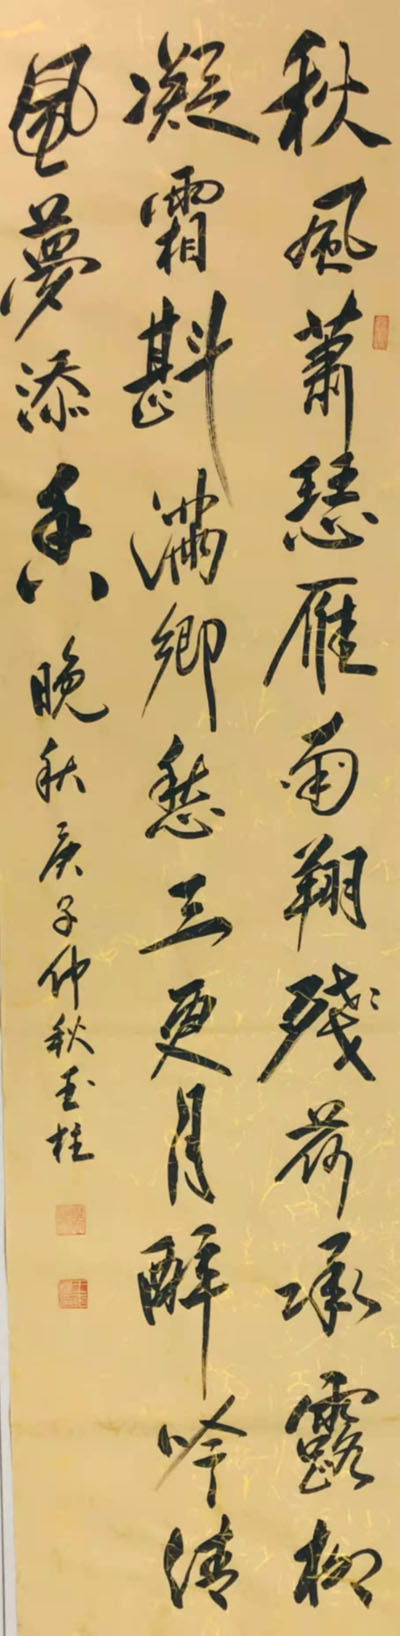 秋风萧瑟雁南翔残荷承露柳
凝霜斟满乡愁三更月醉吟清
风梦添香
晚秋庚子仲秋玉桂